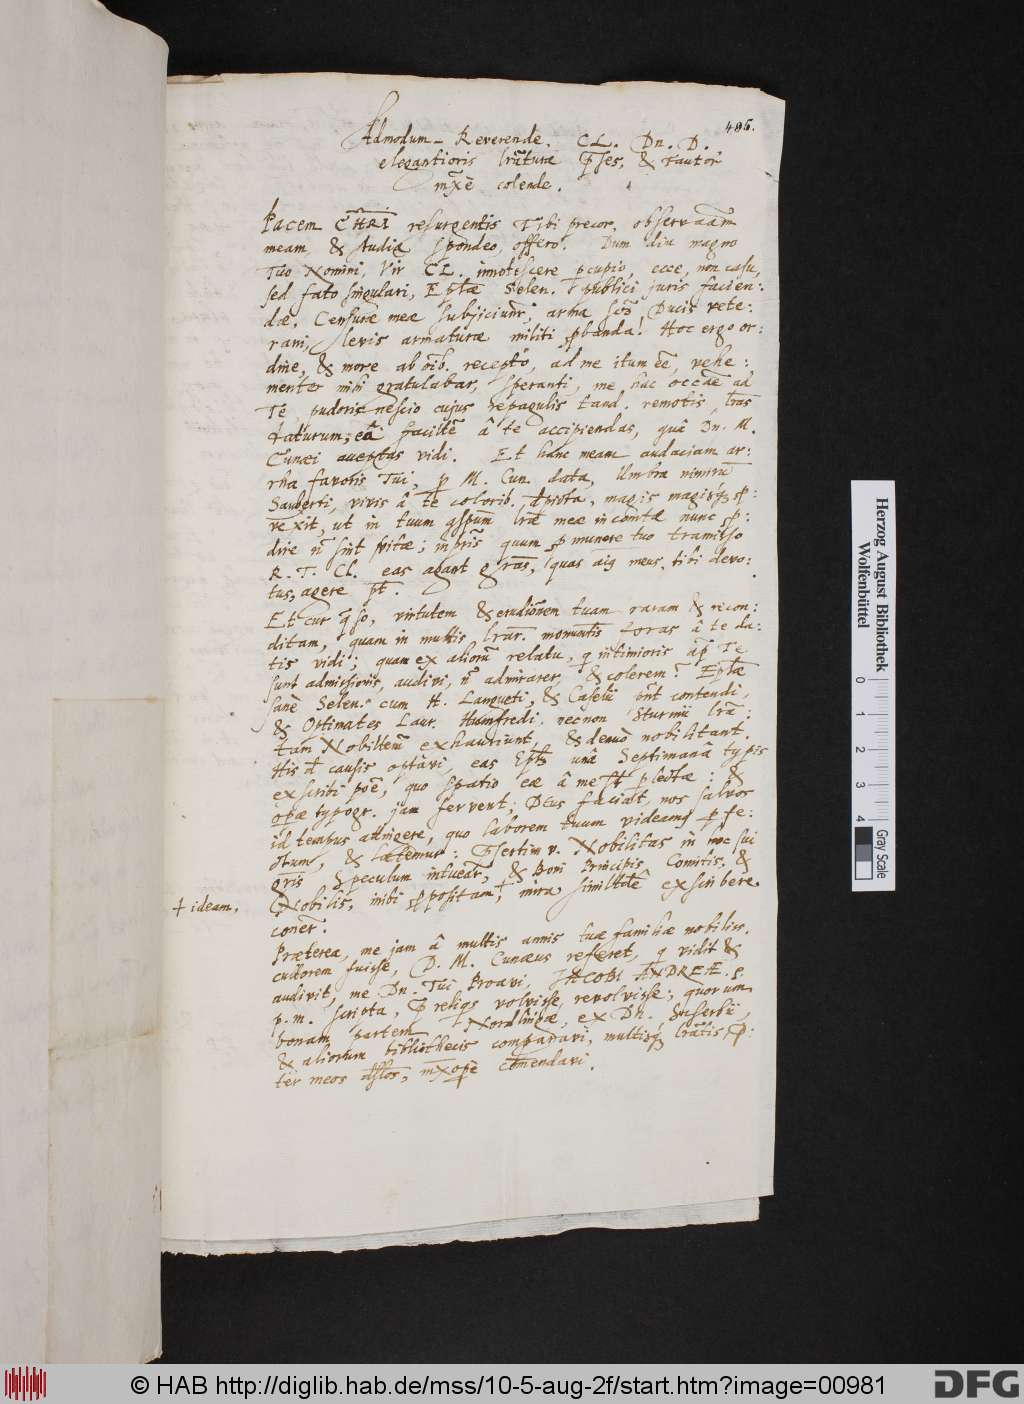 486.
Admodum Reverende. CL. Dn. D.
elegantioris lr̃aturæ p̃ses, & Fautor
mx̃e colende.
Pacem CHRI resurgentis Tibi precor, observaãm
meam, & studia spondeo, offero. Dum diu magno
Tuo Nomini, Vir CL. innotescere pcupio, ecce, non casu,
sed fato singulari, Eptæ Selen. publici juris facien:
dæ. Censuræ meæ subjiciunt̃; arma Ducis vete:
rani, levis armaturæ militi p̱banda! Hoc ergo or:
dine, & more ab oib. recepto, ad me itum eē, vehe:
menter mihi gratulabar, speranti, me hac occãe ad
Te, pudoris nescio cujus repagulis tand. remotis, lr̃as
daturum; eâ facilit̃e â te accipiendas, quâ Dn. M.
Cunæi aveptas vidi. Et hanc meam audaciam ar:
rha favoris Tui, p M. Cun. data, Umbra nimirũ
Sauberti, vivis â te colorib. depicta, magis magisq; p:
vexit, ut in tuum ꝯspum lr̃æ meæ incomtæ nunc p:
dire ñ sint veritæ; inpris̃ quum p munere tuo tramisso
R. T. Cl. eas agant gr̃as, quas aïg meus, tibi devo:
tus, agere pt̃.
Et cur q̃so, virtutem & erudiõnem tuam raram & recon:
ditam, quam in multis lr̃ar. monum̃tis foras â te da:
tis vidi; quam ex aliorũ relatu, q intimioris ap̃ Te
sunt admissionis, audivi, ñ admirarer, & colerem? Eptæ
sanè Selen. cum H. Langueti, & Caselii contendi,
& Optimates Laur. Humfredi. necnon Sturmii lr̃a:
tam Nobilit̃em exhauriunt, & denuò nobilitant.
His d causis optãvi, eas unâ Septimanâ typis
exscribi poẽ, quo spatio eæ â me s̃t plectæ: &
opæ typogr. jam fervent; Deus faciat, nos salvos
id tempus attingere, quo laborem tuum videamg p fe:
ctum, & lætemur: p̃sertim v. Nobilitas in noc sui
gñis Speculum intueat̃r, & Boni Principis, Comitis, &
Nobilis, inibi p̱positam, + mira similit̃de exscribere
+ ideam,
conet̃.
Præterea, me jam â multis annis tuæ familiæ nobiliss.
cultorem fuisse, D. M. Cunæus referet, q vidit &
audivit, me Dn. Tui Proavi, JACOBI ANDREÆ. s.
p. m. scripta, p̃ reliqs volvisse, revolvisse; quorum
bonam partem Nordlingæ, ex Dn. Suserbii,
& aliorum bibliothecis comparavi, multisq; lr̃atis p̃:
ter meos mxopè com̃endavi.
Herzog August Bibliothek
Wolfenbüttel
0 1 2 3 4
Gray Scale
© HAB http://diglib.hab.de/mss/10-5-aug-2f/start.htm?image=00981
DFG